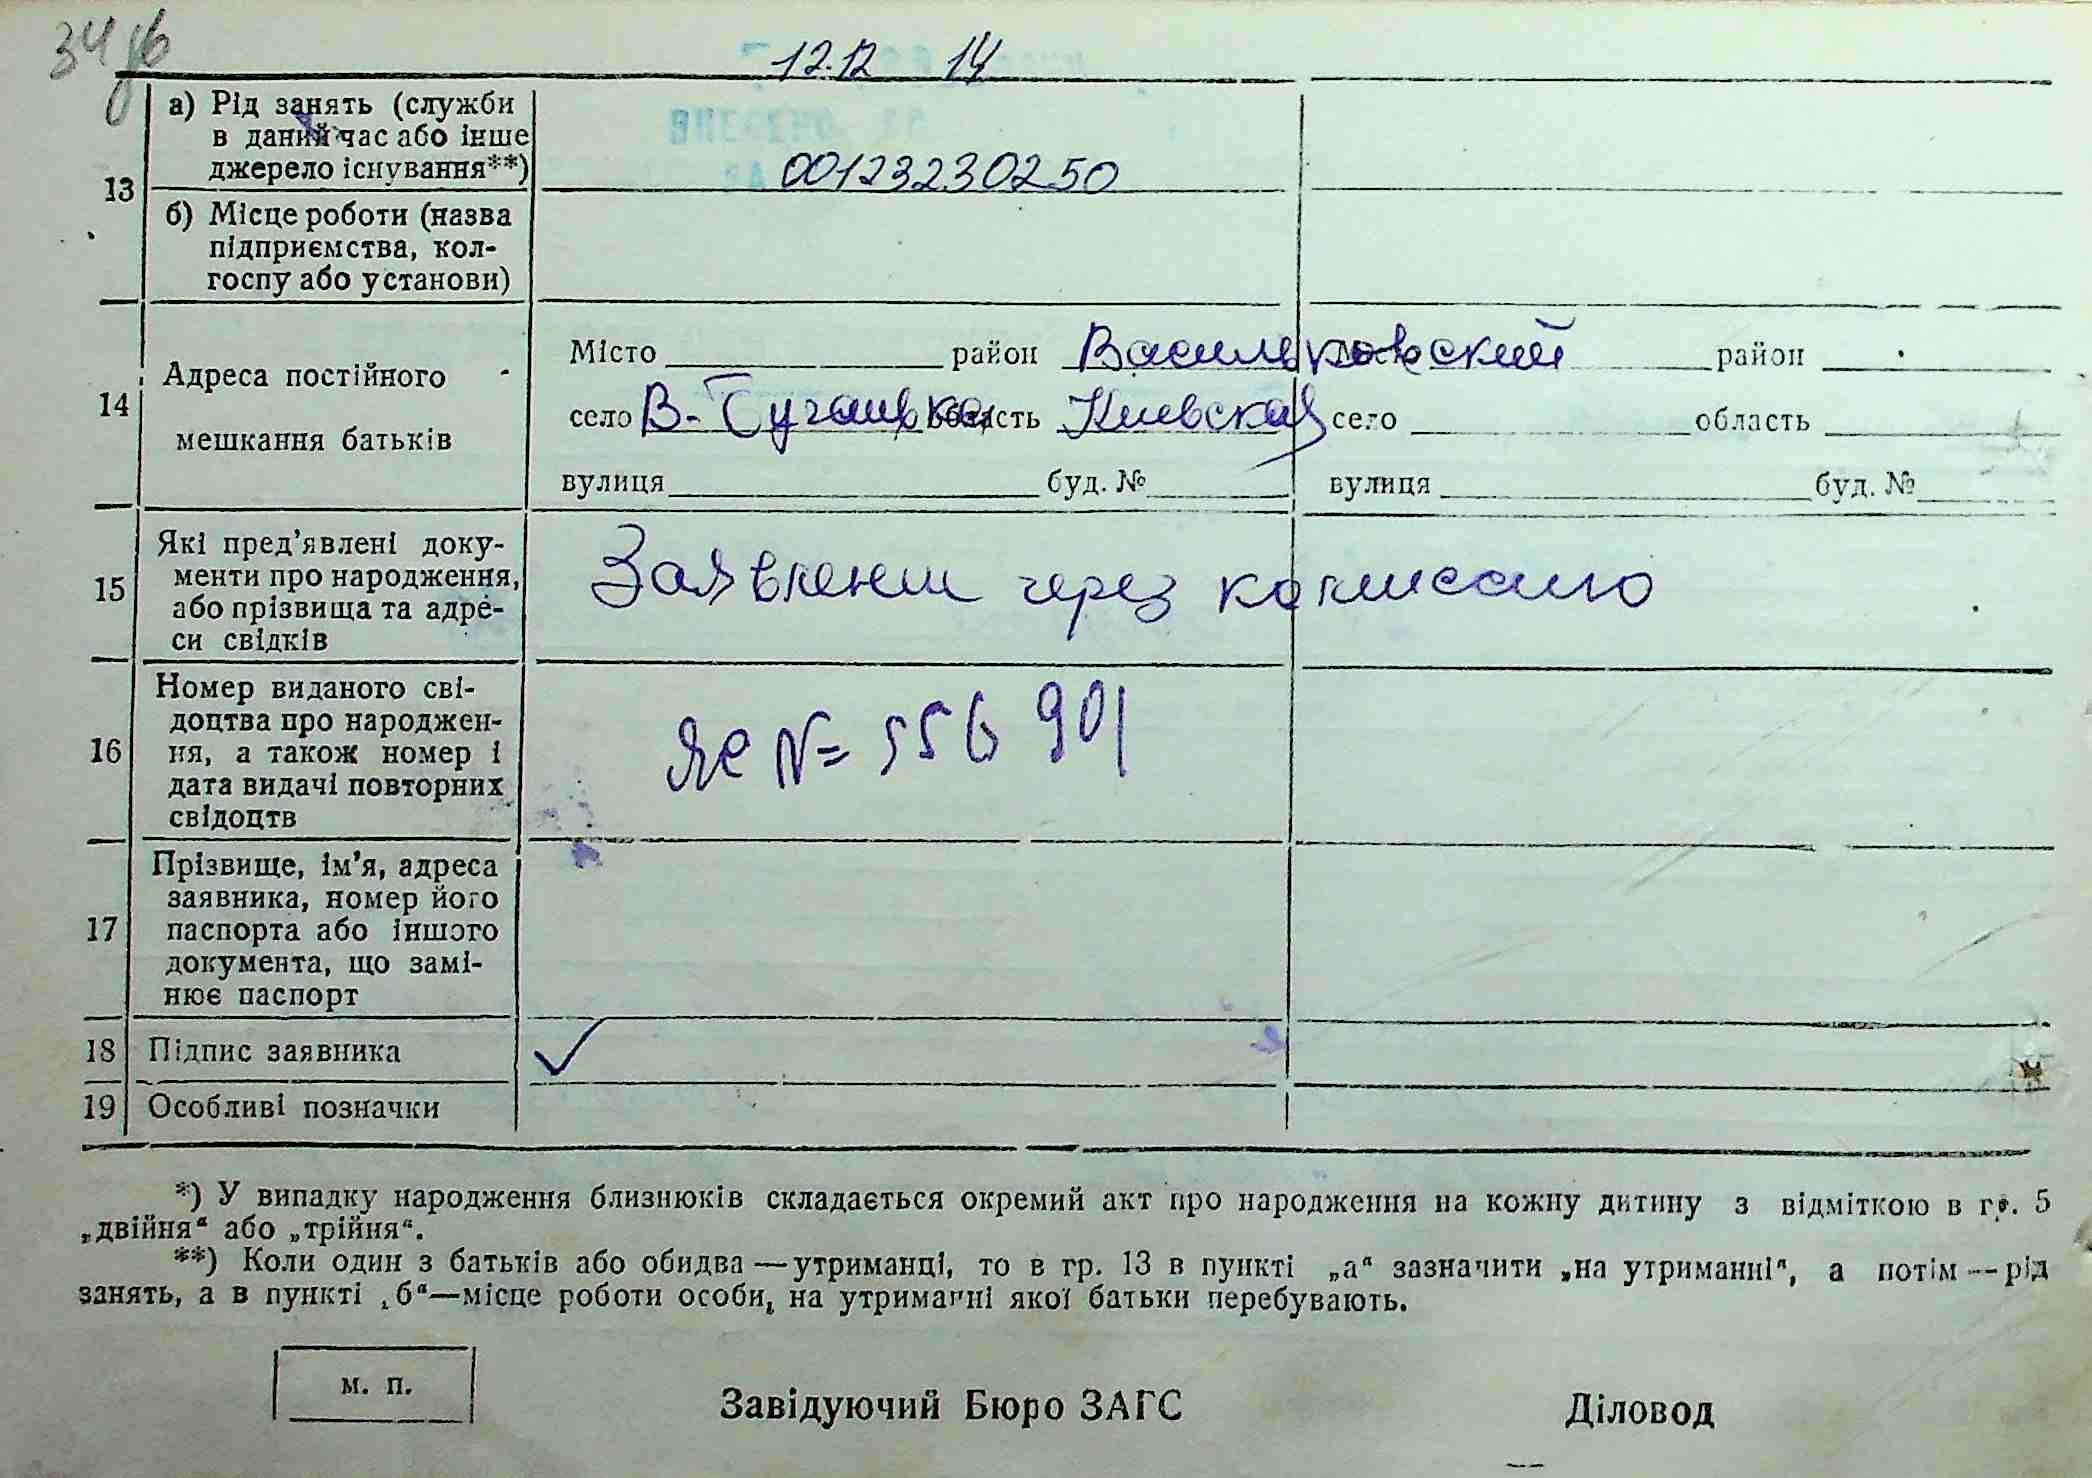 12.12 14
13
а) Рід занять (служби
в даний час або інше
джерело існування**)
00123230250
б) Місце роботи (назва
підприємства, кол-
госпу або установи)
14
Адреса постійного
мешкання батьків
Місто район Васильковский Місто район
село В- Бугаевка область Киевская село область
вулиця буд. № вулиця буд. №
15
Які пред’явлені доку-
менти про народження,
або прізвища та адре-
си свідків
Заявлении через комиссию
16
Номер виданого сві-
доцтва про народжен-
ня, а також номер і
дата видачі повторних
свідоцтв
№ 556901
17
Прізвище, ім’я, адреса
заявника, номер його
паспорта або іншого
документа, що замі-
нює паспорт
18 Підпис заявника
19 Особливі позначки
*) У випадку народження близнюків складається окремий акт про народження на кожну дитину з відміткою в гр. 5
„двійня“ або „трійня“.
**) Коли один з батьків або обидва — утриманці, то в гр. 13 в пункті „а“ зазначити „на утриманні“, а потім — рід
занять, а в пункті „б“—місце роботи особи, на утриманні якої батьки перебувають.
м. п.
Завідуючий Бюро ЗАГС Діловод